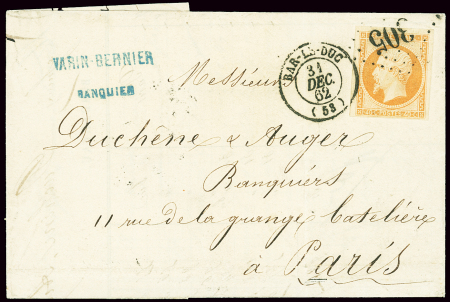 VARIN-BERNIER
BANQUIER
BAR-LE-DUC
31
DEC.
62
(53)
305
Messieurs
Duchêne & Auger
Banquiers
11 rue de la grange batelière
à Paris